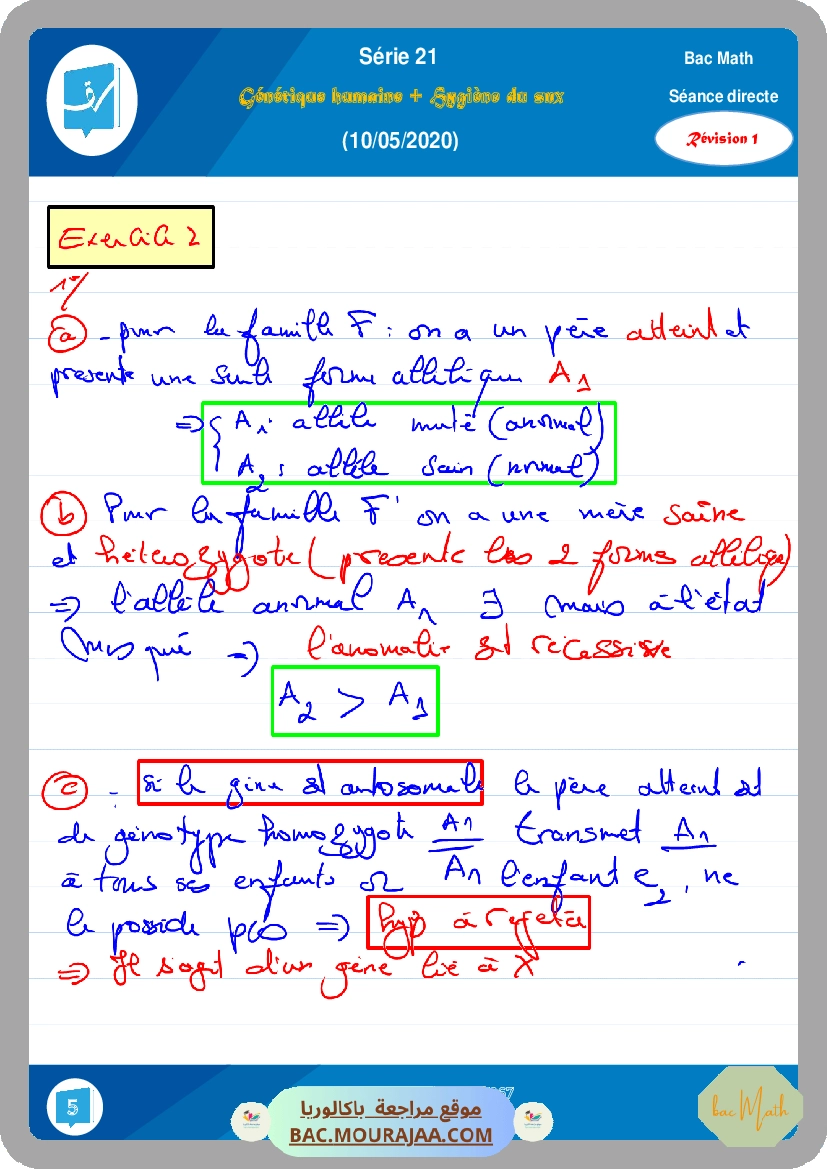 Série 21
Bac Math
Génétique humaine + Hygiène du sux
Séance directe
(10/05/2020)
Révision 1
Exercice 2
1°/
a - pour la famille F : on a un père atteint et
présente une seule forme allélique A1
=> { A1 : allèle muté (anormal)
A2 : allèle sain (normal)
b Pour la famille F' on a une mère saine
et hétérozygote (présente les 2 formes alléliques)
=> l'allèle anormal A1 ∃ mais à l'état
masqué => l'anomalie est récessive
A2 > A1
c - si le gène est autosomale le père atteint est
de génotype homozygote A1/A1 transmet A1
à tous ses enfants or l'enfant e2, ne
le possède pas => hyp à rejeter
=> Il s'agit d'un gène lié à X
5
موقع مراجعة باكالوريا
BAC.MOURAJAA.COM
bac Math